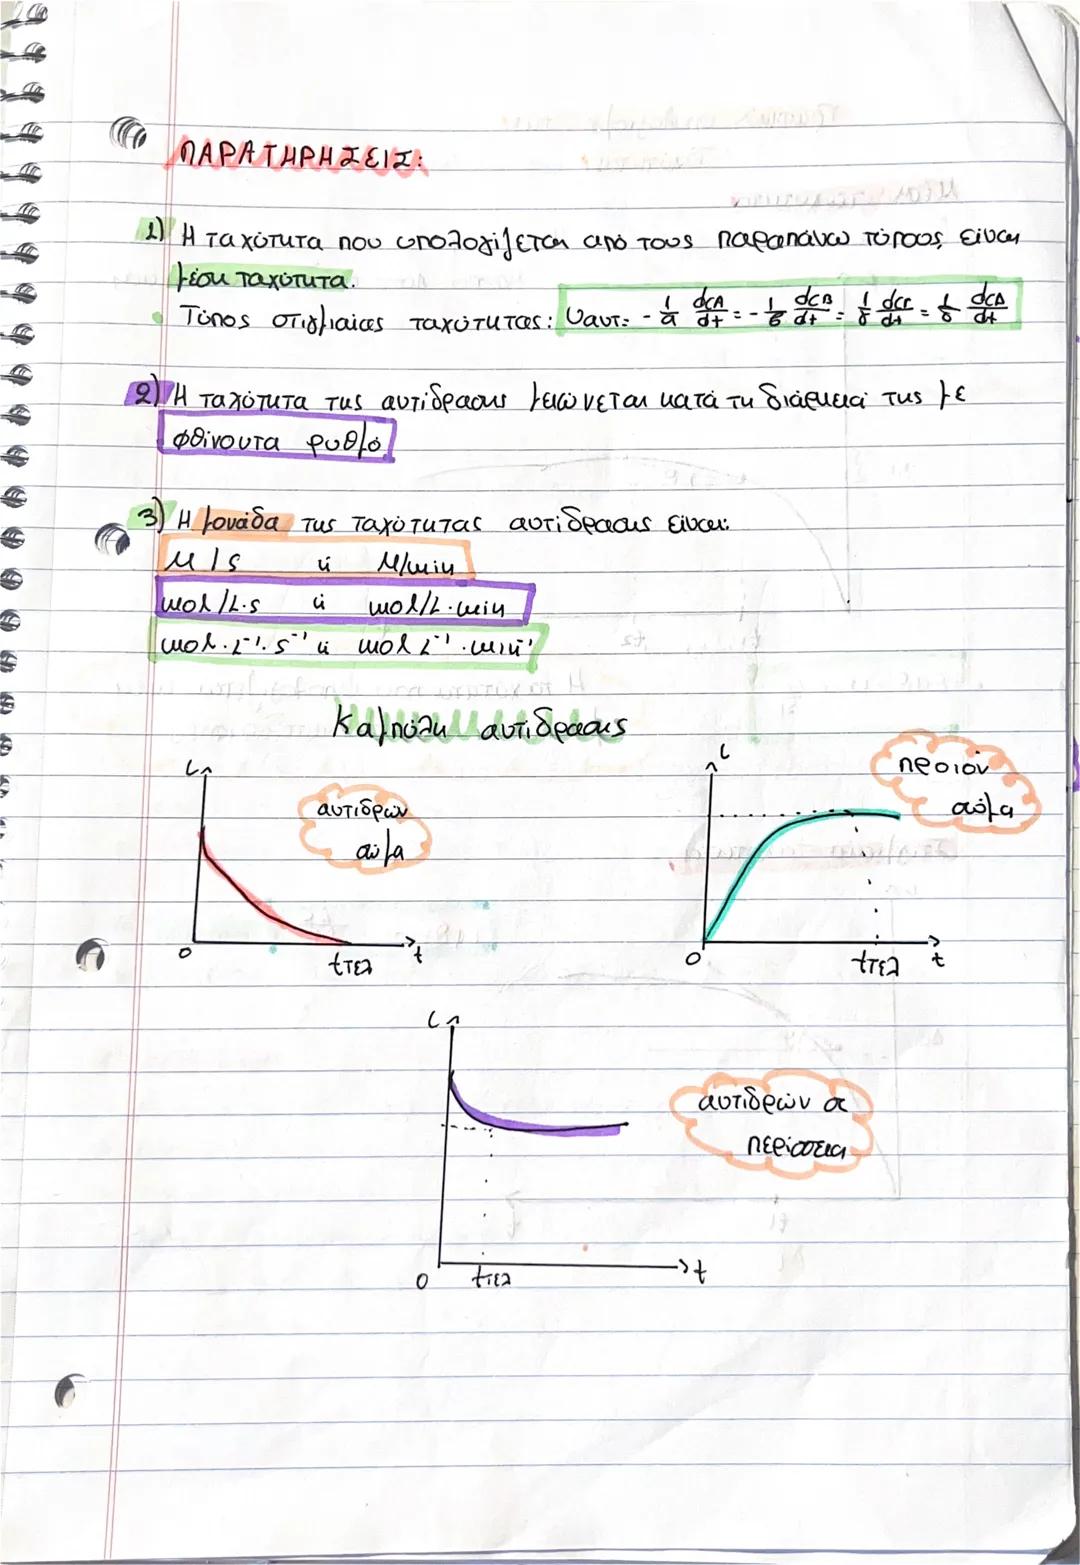 ΠΑΡΑΤΗΡΗΣΕΙΣ:
1) Η ταχύτητα που υπολογίζεται από τους παραπάνω τύπους, είναι
μέση ταχύτητα.
• Τύπος στιγμιαίας ταχύτητας: υαντ= - 1/α dCA/dt = - 1/β dCB/dt = 1/γ dCΓ/dt = 1/δ dCΔ/dt
2) Η ταχύτητα της αντίδρασης μειώνεται κατά τη διάρκειά της με
φθίνοντα ρυθμό.
3) Η μονάδα της ταχύτητας αντίδρασης είναι:
M/s ή M/min
mol/L·s ή mol/L·min
mol·L⁻¹·s⁻¹ ή mol L⁻¹·min⁻¹
Καμπύλη αντίδρασης
C αντιδρών σώμα
0 tτελ t
C προϊόν σώμα
0 tτελ t
C αντιδρών σε περίσσεια
0 tτελ t